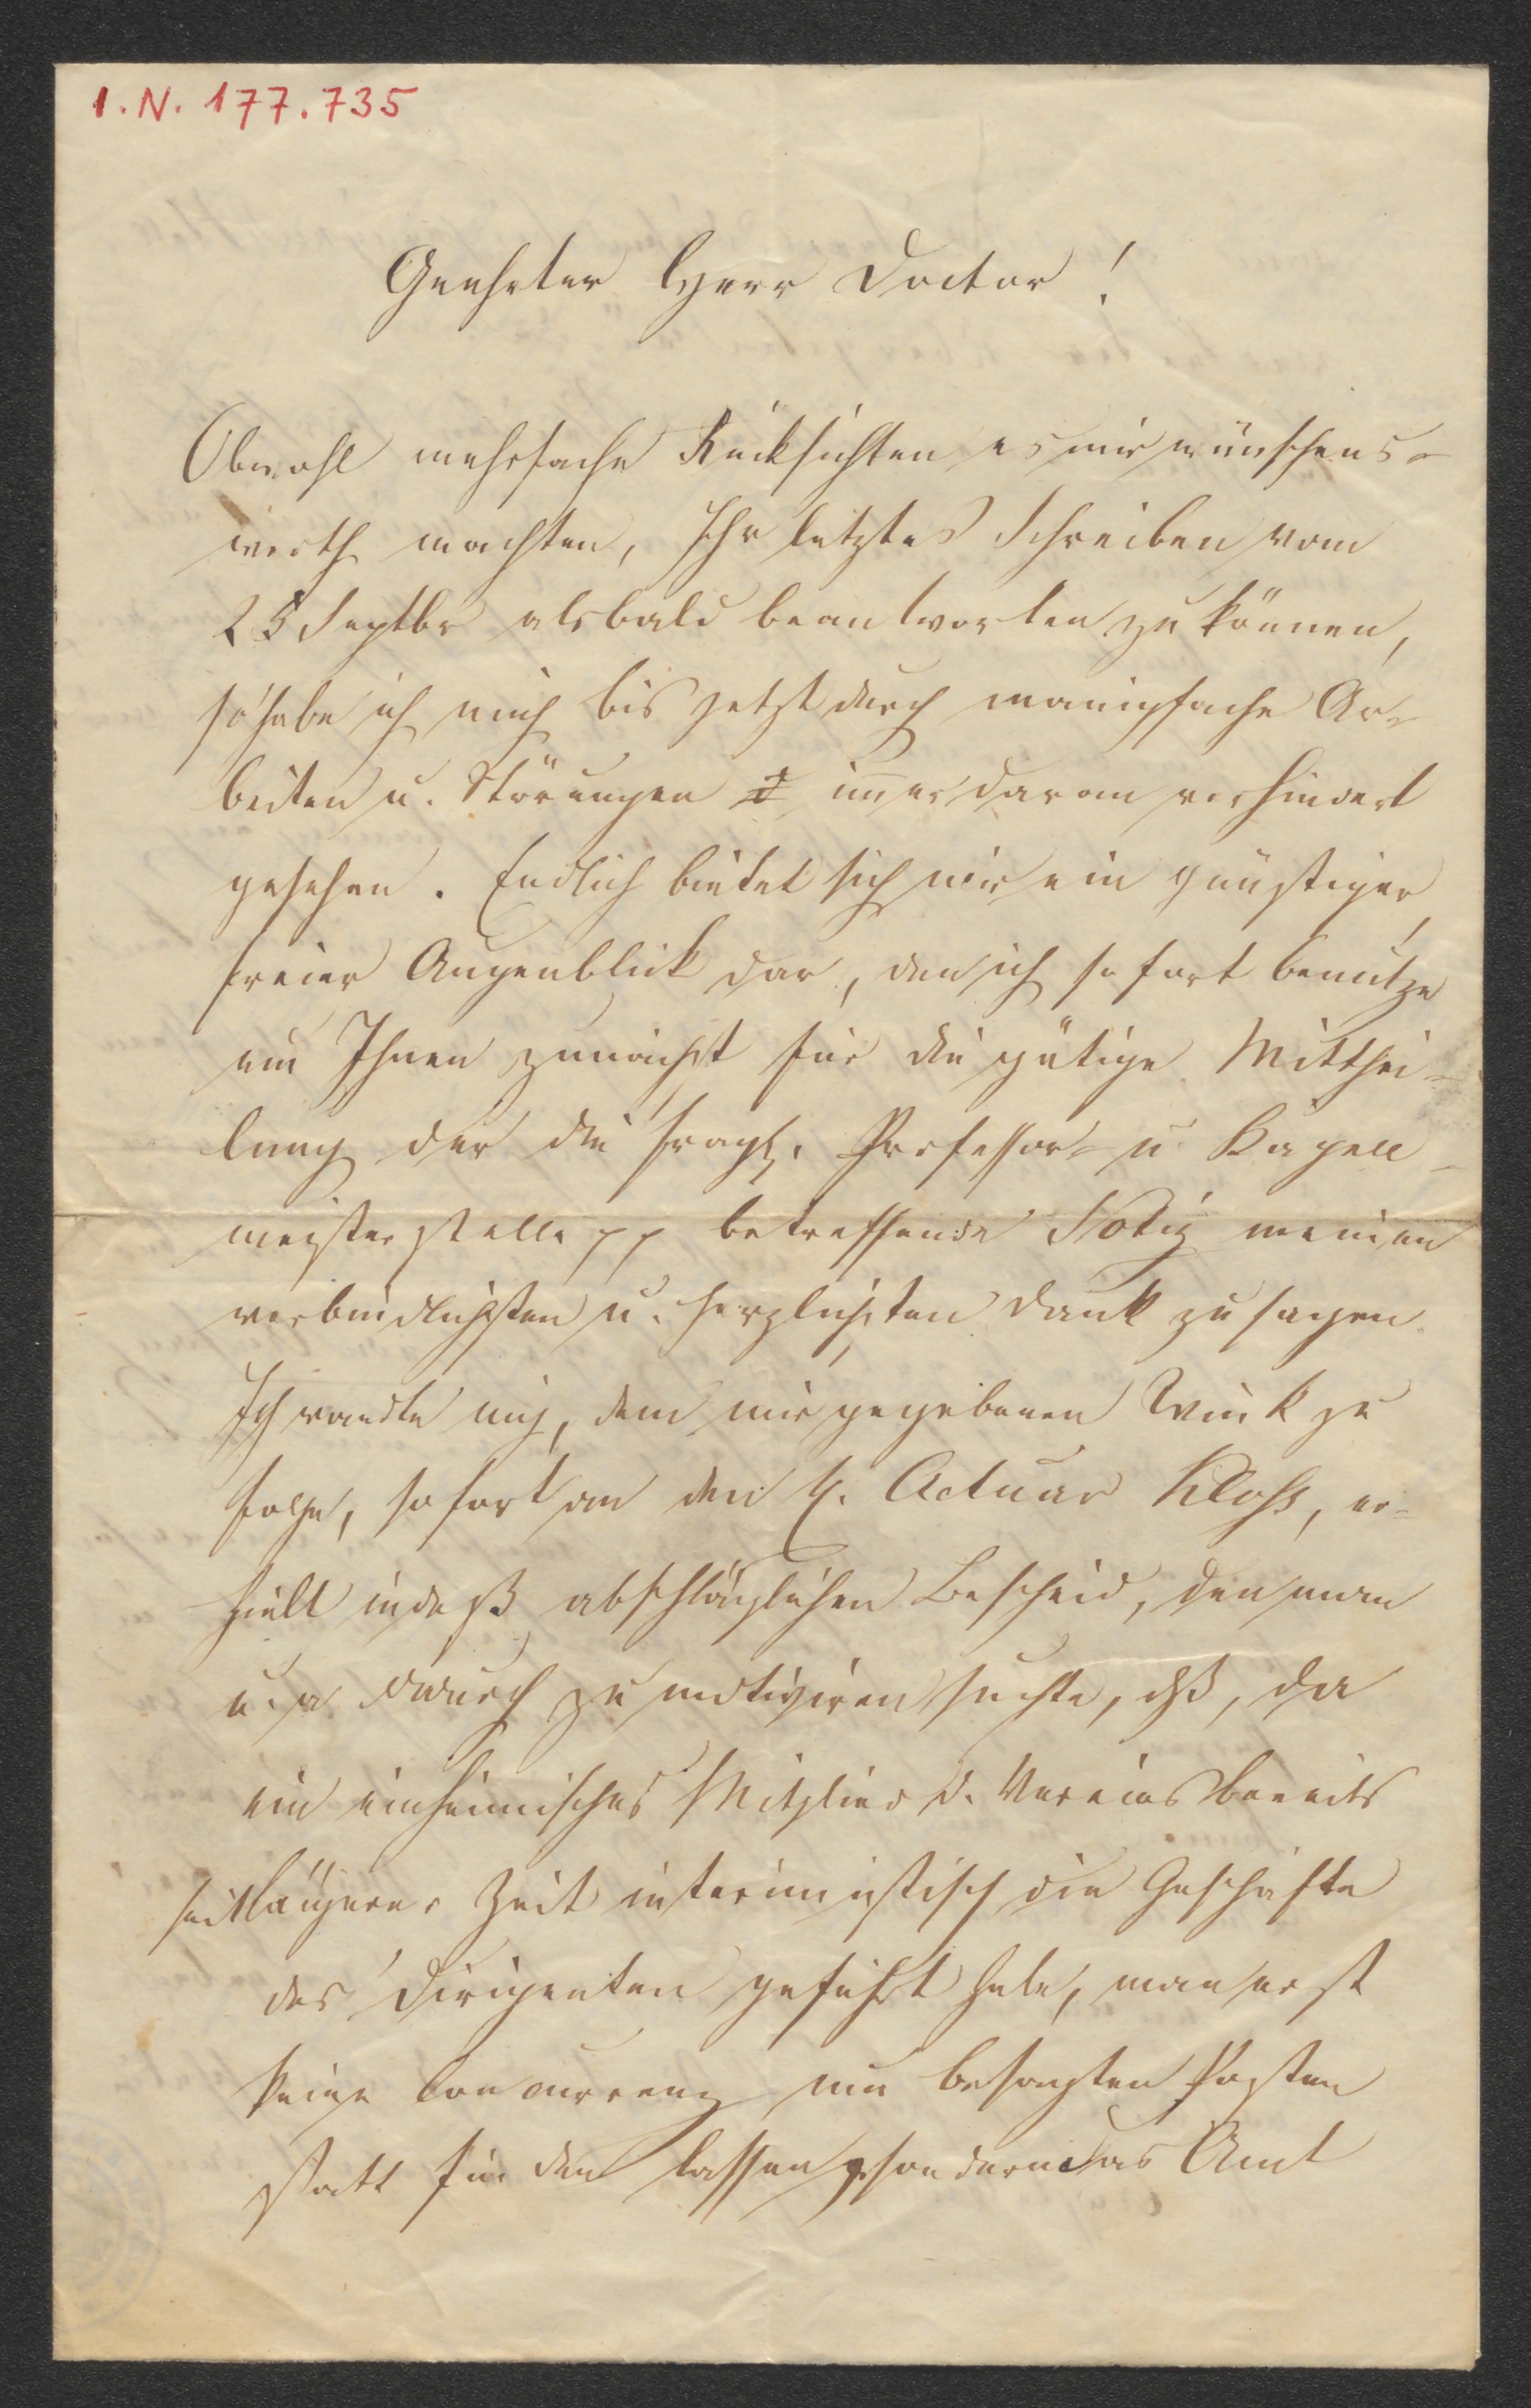 I.N. 177.735
Geehrter Herr Doctor!
Obwohl mehrfache Rücksichten es mir wünschens-
werth machten, Ihr letztes Schreiben vom
25 Septbr alsbald beantworten zu können,
so habe ich mich bis jetzt durch mannigfache Ar-
beiten u. Störungen immer daran verhindert
gesehen. Endlich bietet sich mir ein günstiger
freier Augenblick dar, den ich sofort benutze
um Ihnen zunächst für die gütige Mitthei-
lung der die fragl. Professor- u Kapell-
meisterstelle pp betreffende Notiz meinen
verbindlichsten u. herzlichsten Dank zu sagen.
Ich wandte mich, dem mir gegebenen Wink zu
folge, sofort an den H. Actuar Kloss, er-
hielt indeß abschläglichen Bescheid, den man
u. a. dadurch zu motiviren suchte, dß, da
ein einheimisches Mitglied d. Vereins bereits
seit längerer Zeit interimistisch die Geschäfte
des Dirigenten geführt habe, man erst
keine Concurrenz um besagten Posten
statt finden lassen, sondern das Amt